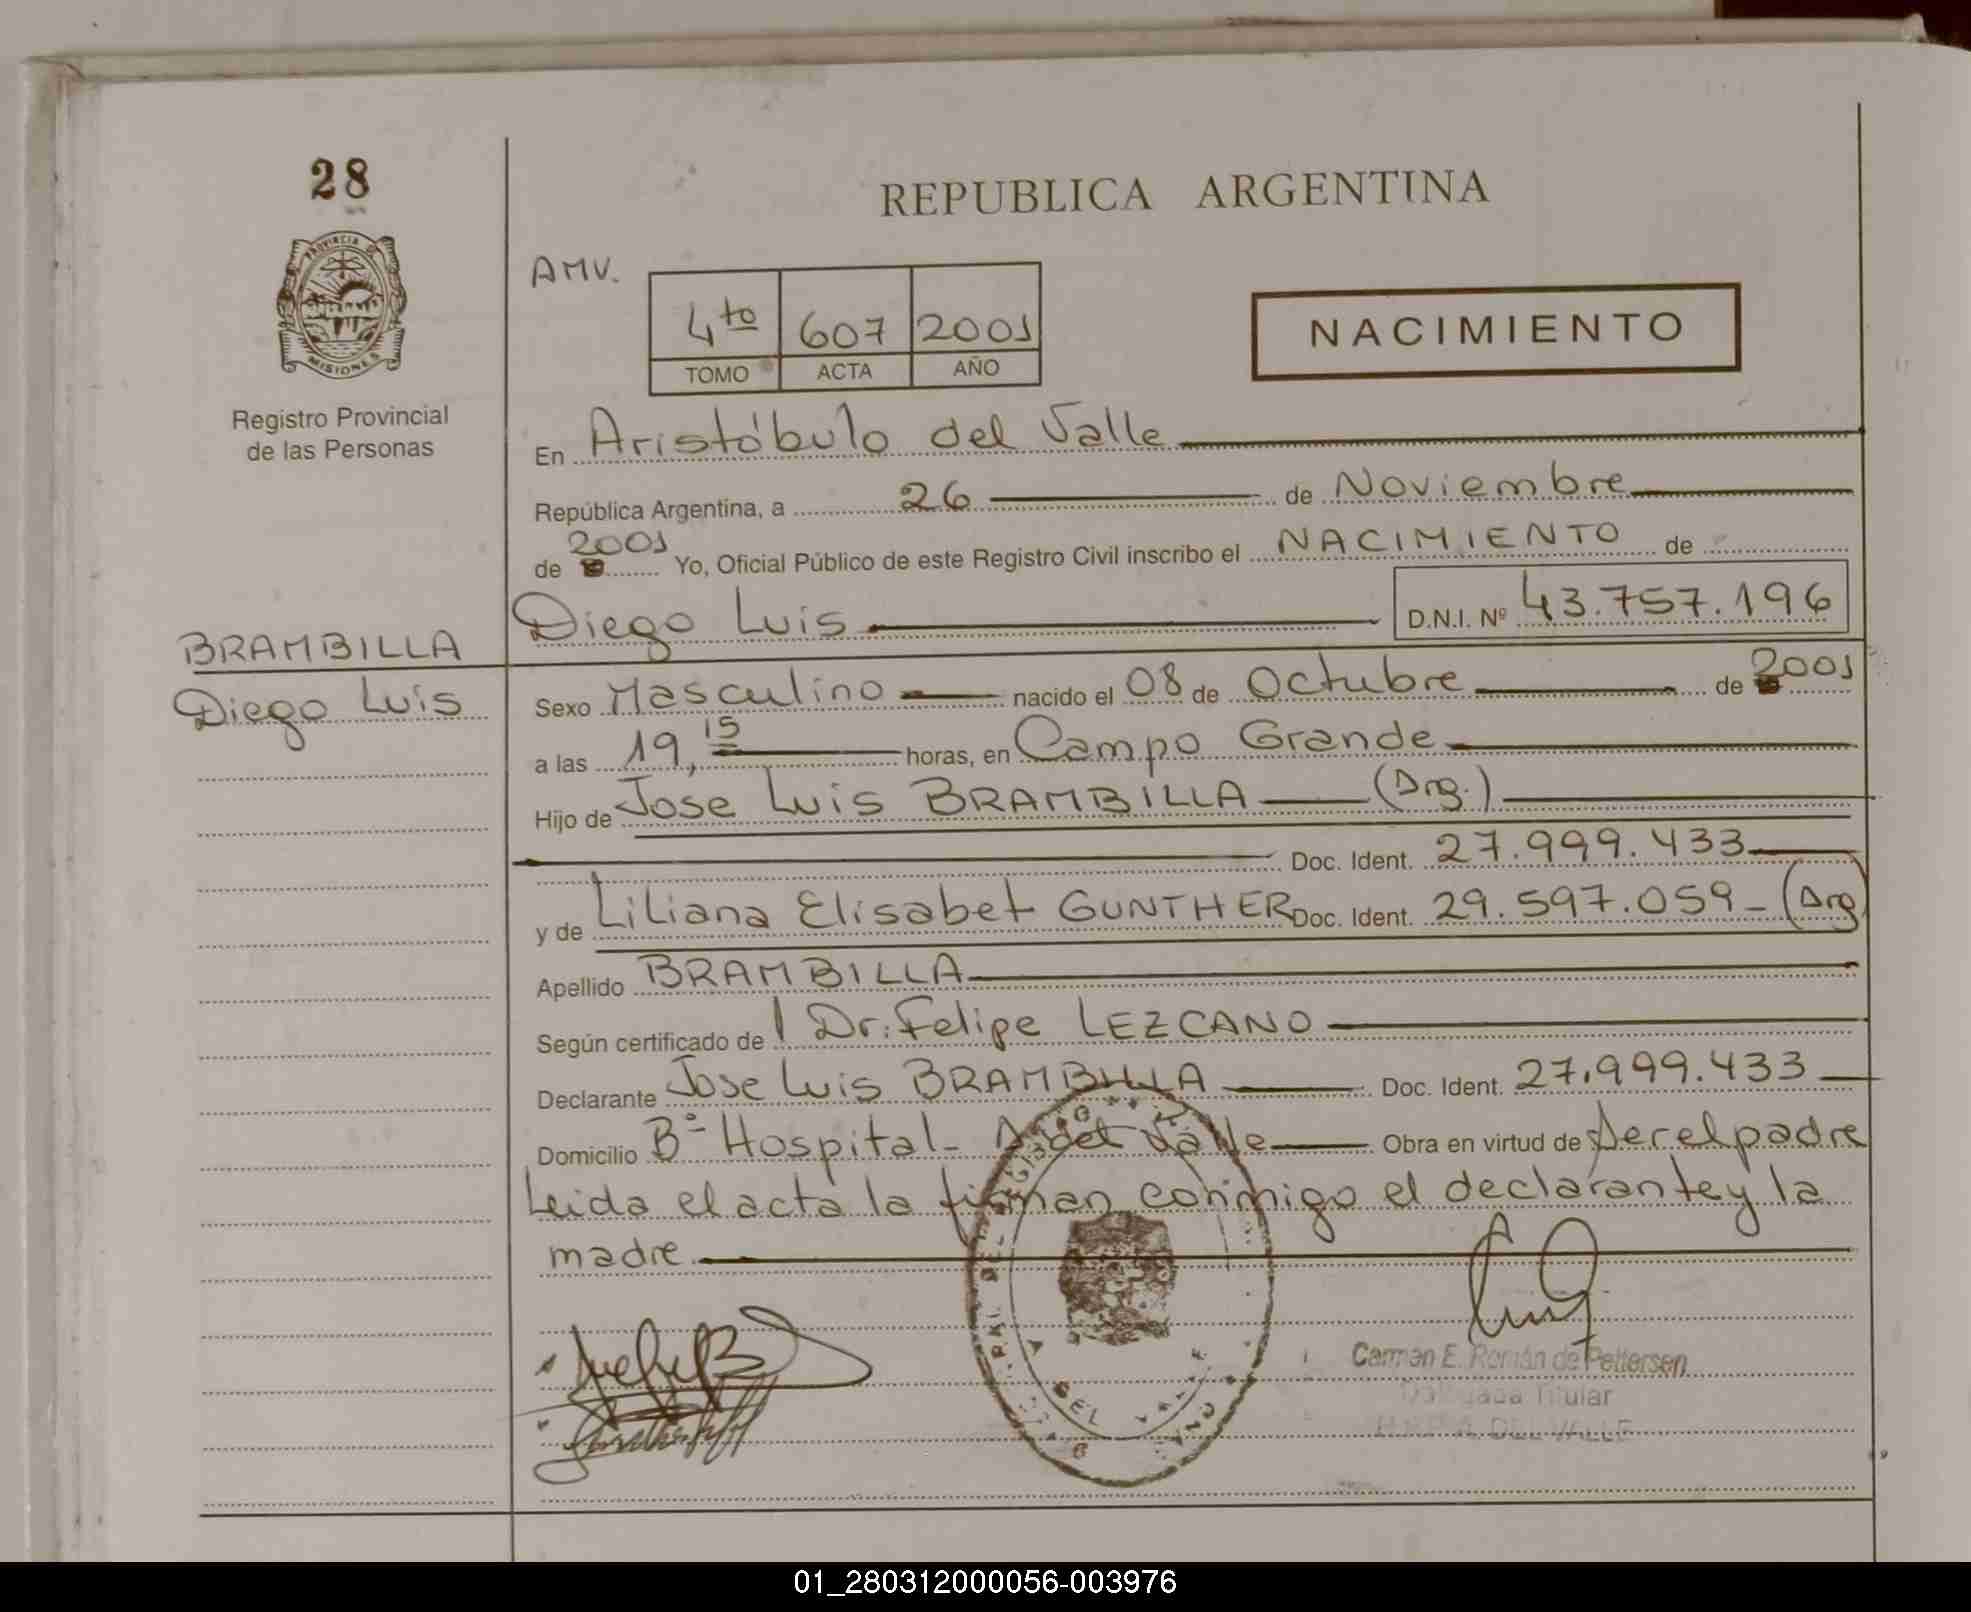 28
REPUBLICA ARGENTINA
PROVINCIA D
MISIONES
Registro Provincial
de las Personas
AMV.
4to 607 2001
TOMO ACTA AÑO
NACIMIENTO
En Aristóbulo del Valle
República Argentina, a 26 de Noviembre
de 2001 Yo, Oficial Público de este Registro Civil inscribo el NACIMIENTO de
Diego Luis D.N.I. Nº 43.757.196
BRAMBILLA
Diego Luis
Sexo Masculino nacido el 08 de Octubre de 2001
a las 19,15 horas, en Campo Grande
Hijo de Jose Luis BRAMBILLA (Arg.)
Doc. Ident. 27.999.433
y de Liliana Elisabet GUNTHER Doc. Ident. 29.597.059 - (Arg)
Apellido BRAMBILLA
Según certificado de Dr. Felipe LEZCANO
Declarante Jose Luis BRAMBILLA Doc. Ident. 27.999.433
Domicilio Bº Hospital - A. del Valle Obra en virtud de ser el padre
Leida el acta la firman conmigo el declarante y la
madre
Carmen E. Román de Pettersen
Delegada Titular
A. DEL VALLE
01_280312000056-003976